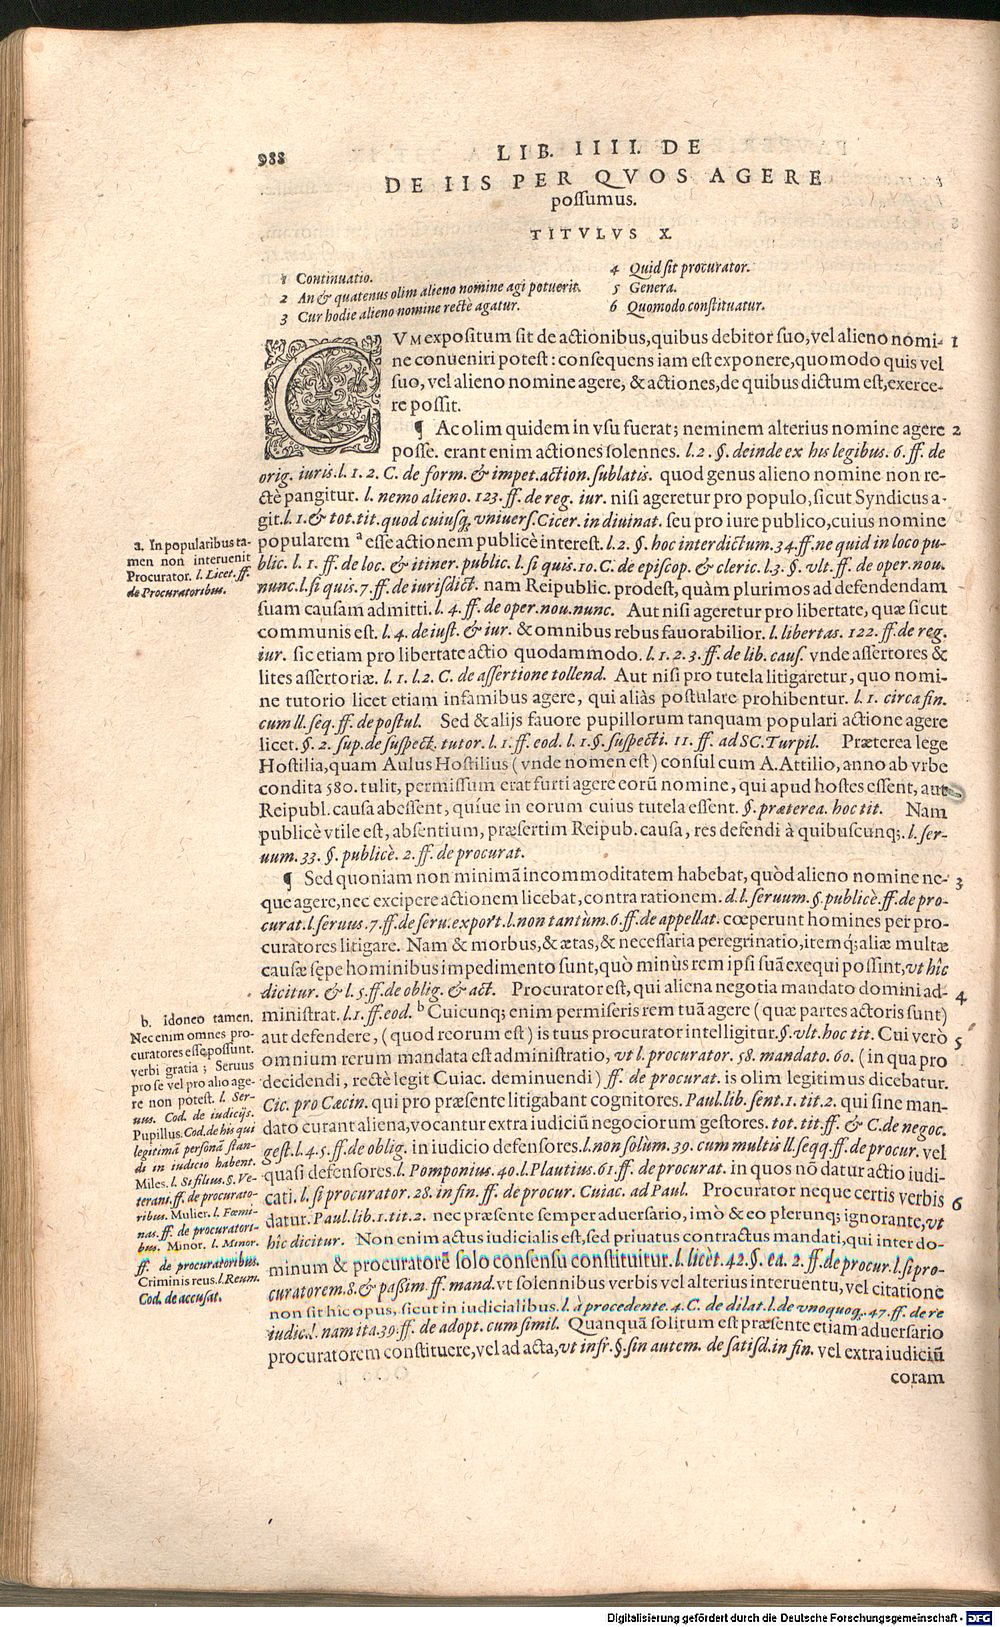 988
LIB. IIII. DE
DE IIS PER QVOS AGERE
poſſumus.
TITVLVS X
1 Continuatio.
2 An & quatenus olim alieno nomine agi potuerit.
3 Cur hodie alieno nomine rectè agatur.
4 Quid ſit procurator.
5 Genera.
6 Quomodo conſtituatur.
CVM expoſitum ſit de actionibus, quibus debitor ſuo, vel alieno nomi- 1
ne conueniri poteſt: conſequens iam eſt exponere, quomodo quis vel
ſuo, vel alieno nomine agere, & actiones, de quibus dictum eſt, exerce-
re poſſit.
¶ Ac olim quidem in vſu fuerat; neminem alterius nomine agere 2
poſſe. erant enim actiones ſolennes. l.2. §. deinde ex his legibus. 6. ff. de
orig. iuris. l. 1. 2. C. de form. & impet. action. ſublatis. quod genus alieno nomine non re-
ctè pangitur. l. nemo alieno. 123. ff. de reg. iur. niſi ageretur pro populo, ſicut Syndicus a-
git. l. 1. & tot. tit. quod cuiuſq; vniuerſ. Cicer. in diuinat. ſeu pro iure publico, cuius nomine
popularem a eſſe actionem publicè intereſt. l. 2. §. hoc interdictum. 34. ff. ne quid in loco pu-
blic. l. 1. ff. de loc. & itiner. public. l. ſi quis. 10. C. de epiſcop. & cleric. l. 3. §. vlt. ff. de oper. nou.
nunc. l. ſi quis. 7. ff. de iuriſdict. nam Reipublic. prodeſt, quàm plurimos ad defendendam
ſuam cauſam admitti. l. 4. ff. de oper. nou. nunc. Aut niſi ageretur pro libertate, quæ ſicut
communis eſt. l. 4. de iuſt. & iur. & omnibus rebus fauorabilior. l. libertas. 122. ff. de reg.
iur. ſic etiam pro libertate actio quodammodo. l. 1. 2. 3. ff. de lib. cauſ. vnde aſſertores &
lites aſſertoriæ. l. 1. l. 2. C. de aſſertione tollend. Aut niſi pro tutela litigaretur, quo nomi-
ne tutorio licet etiam infamibus agere, qui aliàs poſtulare prohibentur. l. 1. circa fin.
cum ll. ſeq. ff. de poſtul. Sed & alijs fauore pupillorum tanquam populari actione agere
licet. §. 2. ſup. de ſuſpect. tutor. l. 1. ff. eod. l. 1. §. ſuſpecti. 11. ff. ad SC. Turpil. Præterea lege
Hoſtilia, quam Aulus Hoſtilius (vnde nomen eſt) conſul cum A. Attilio, anno ab vrbe
condita 580. tulit, permiſſum erat furti agere eorũ nomine, qui apud hoſtes eſſent, aut
Reipubl. cauſa abeſſent, quiue in eorum cuius tutela eſſent. §. præterea. hoc tit. Nam
publicè vtile eſt, abſentium, præſertim Reipub. cauſa, res defendi à quibuſcunq;. l. ſer-
uum. 33. §. publicè. 2. ff. de procurat.
¶ Sed quoniam non minimã incommoditatem habebat, quòd alieno nomine ne- 3
que agere, nec excipere actionem licebat, contra rationem. d. l. ſeruum. §. publicè. ff. de pro-
curat. l. ſeruus. 7. ff. de ſeru. export. l. non tantùm. 6. ff. de appellat. cœperunt homines per pro-
curatores litigare. Nam & morbus, & ætas, & neceſſaria peregrinatio, itemq; aliæ multæ
cauſæ ſępe hominibus impedimento ſunt, quò minùs rem ipſi ſuã exequi poſſint, vt hîc
dicitur. & l. 5. ff. de oblig. & act. Procurator eſt, qui aliena negotia mandato domini ad- 4
miniſtrat. l. 1. ff. eod. b Cuicunq; enim permiſeris rem tuã agere (quæ partes actoris ſunt)
aut defendere, (quod reorum eſt) is tuus procurator intelligitur. §. vlt. hoc tit. Cui verò 5
omnium rerum mandata eſt adminiſtratio, vt l. procurator. 58. mandato. 60. (in qua pro
decidendi, rectè legit Cuiac. deminuendi) ff. de procurat. is olim legitimus dicebatur.
Cic. pro Cæcin. qui pro præſente litigabant cognitores. Paul. lib. ſent. 1. tit. 2. qui ſine man-
dato curant aliena, vocantur extra iudiciũ negociorum geſtores. tot. tit. ff. & C. de negoc.
geſt. l. 4. 5. ff. de oblig. in iudicio defenſores. l. non ſolùm. 39. cum multis ll. ſeqq. ff. de procur. vel
quaſi defenſores. l. Pomponius. 40. l. Plautius. 61. ff. de procurat. in quos nõ datur actio iudi-
cati. l. ſi procurator. 28. in fin. ff. de procur. Cuiac. ad Paul. Procurator neque certis verbis 6
datur. Paul. lib. 1. tit. 2. nec præſente ſemper aduerſario, imò & eo plerunq; ignorante, vt
hîc dicitur. Non enim actus iudicialis eſt, ſed priuatus contractus mandati, qui inter do-
minum & procuratorẽ ſolo conſenſu conſtituitur. l. licèt. 42. §. ea. 2. ff. de procur. l. ſi pro-
curatorem. 8. & paſſim. ff. mand. vt ſolennibus verbis vel alterius interuentu, vel citatione
non ſit hîc opus, ſicut in iudicialibus. l. à procedente. 4. C. de dilat. l. de vnoquoq;. 47. ff. de re
iudic. l. nam ita. 39. ff. de adopt. cum ſimil. Quanquã ſolitum eſt præſente etiam aduerſario
procuratorem conſtituere, vel ad acta, vt infr. §. ſin autem. de ſatiſd. in fin. vel extra iudiciũ
coram
a. In popularibus ta-
men non interuenit
Procurator. l. Licet. ff.
de Procuratoribus.
b. idoneo tamen.
Nec enim omnes pro-
curatores eſſe poſſunt.
verbi gratia; Seruus
pro ſe vel pro alio age-
re non poteſt. l. Ser-
uus. Cod. de iudicijs.
Pupillus. Cod. de his qui
legitimã perſonã ſtan-
di in iudicio habent.
Miles. l. Si filius. §. Ve-
terani. ff. de procurato-
ribus. Mulier. l. Fœmi-
nas. ff. de procuratori-
bus. Minor. l. Minor.
ff. de procuratoribus.
Criminis reus. l. Reum.
Cod. de accuſat.
Digitalisierung gefördert durch die Deutsche Forschungsgemeinschaft - DFG